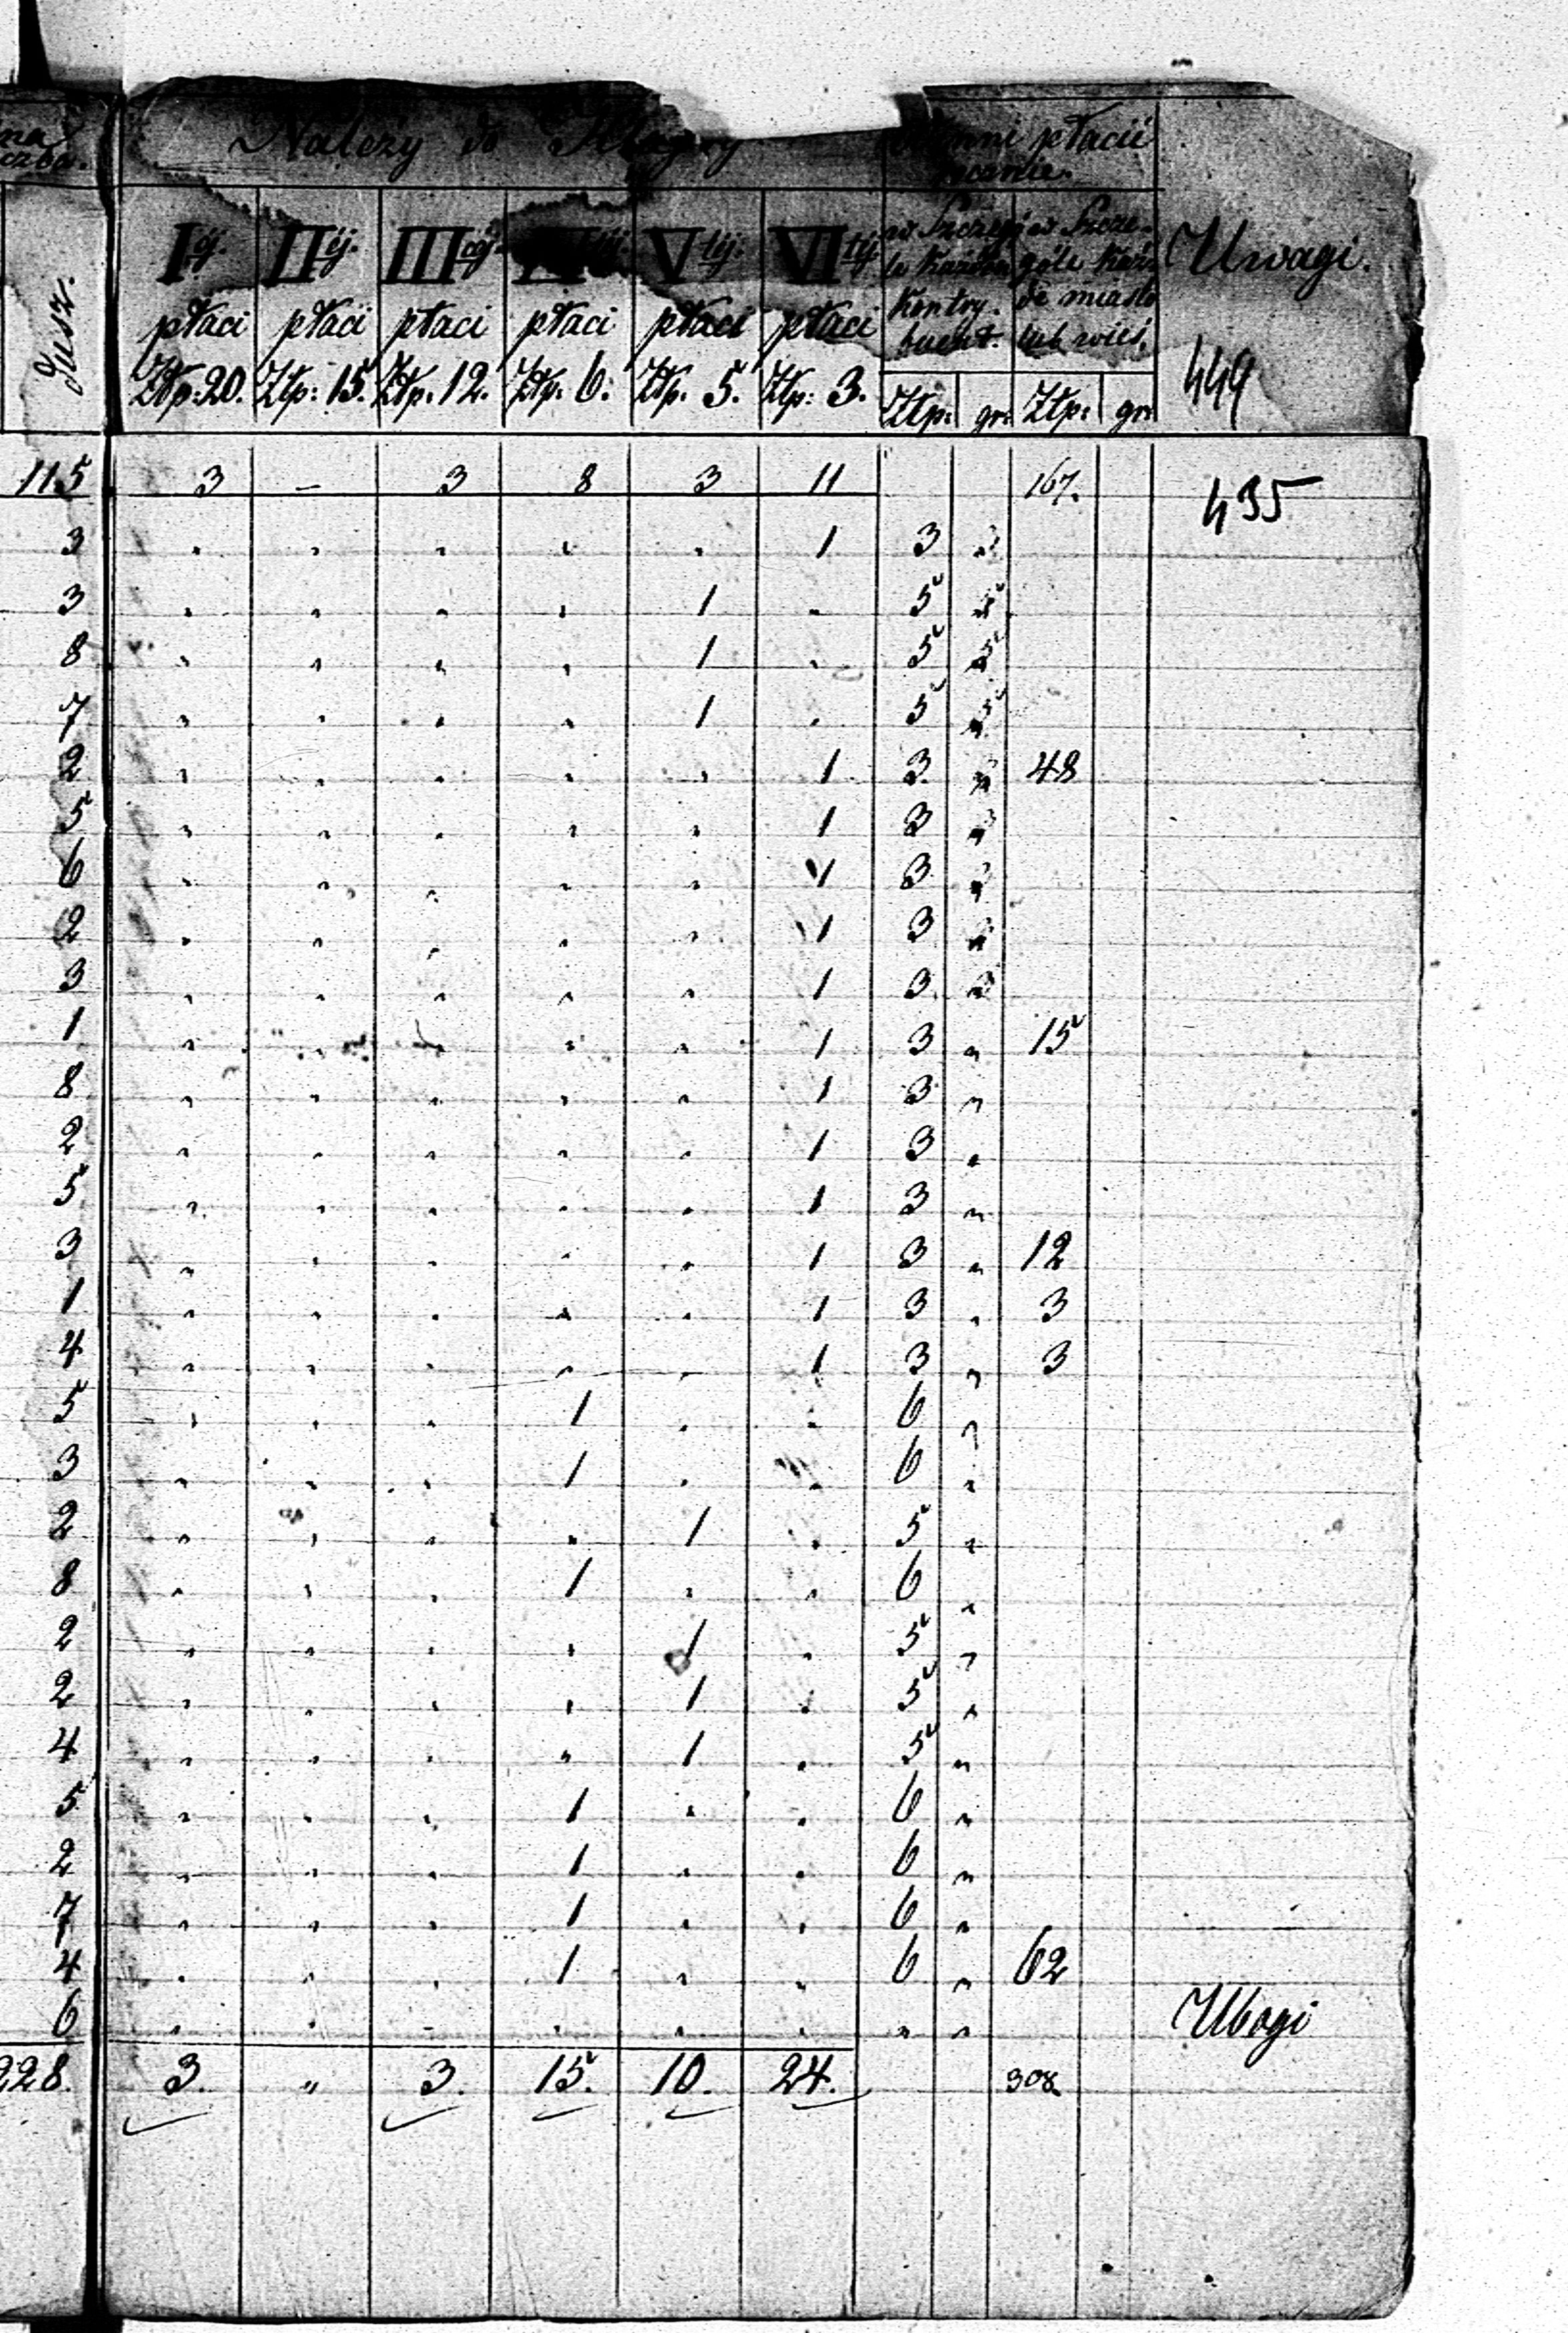 Należy do Klassy
płacić
rocznie.
Dusz.
I éj. II éj. III céj. V téj. VI téj.
w Szczegó w Szcze-
góle Każ-
de miasto
Kontry- lub wieś.
buent.
Uwagi.
płaci płaci płaci płaci płaci płaci
Złp: 20. Złp: 15. Złp. 12. Złp. 6. Złp. 5. Złp: 3.
Złp. gr. Złp. gr.
449
115 3 – 3 8 3 11 167.
435
3 " " " " " 1 3 "
3 " " " " 1 " 5 "
8 " " " " 1 " 5 "
7 " " " " 1 " 5 "
2 " " " " " 1 3. " 48
5 " " " " " 1 3 "
6 " " " " " 1 3 "
2 " " " " " 1 3 "
3 " " " " " 1 3. "
1 " " " " " 1 3 " 15
8 " " " " " 1 3 "
2 " " " " " 1 3 "
5 " " " " " 1 3 "
3 " " " " " 1 3 " 12
1 " " " " " 1 3 " 3
4 " " " " " 1 3 " 3
5 " " " 1 " " 6 "
3 " " " 1 " " 6 "
2 " " " " 1 " 5 "
8 " " " 1 " " 6 "
2 " " " " 1 " 5 "
2 " " " " 1 " 5 "
4 " " " " 1 " 5 "
5 " " " 1 " " 6 "
2 " " " 1 " " 6 "
7 " " " 1 " " 6 "
4 " " " 1 " " 6 " 62
6 " " " " " " " " Ubogi
228. 3. " 3. 15. 10. 24. 308